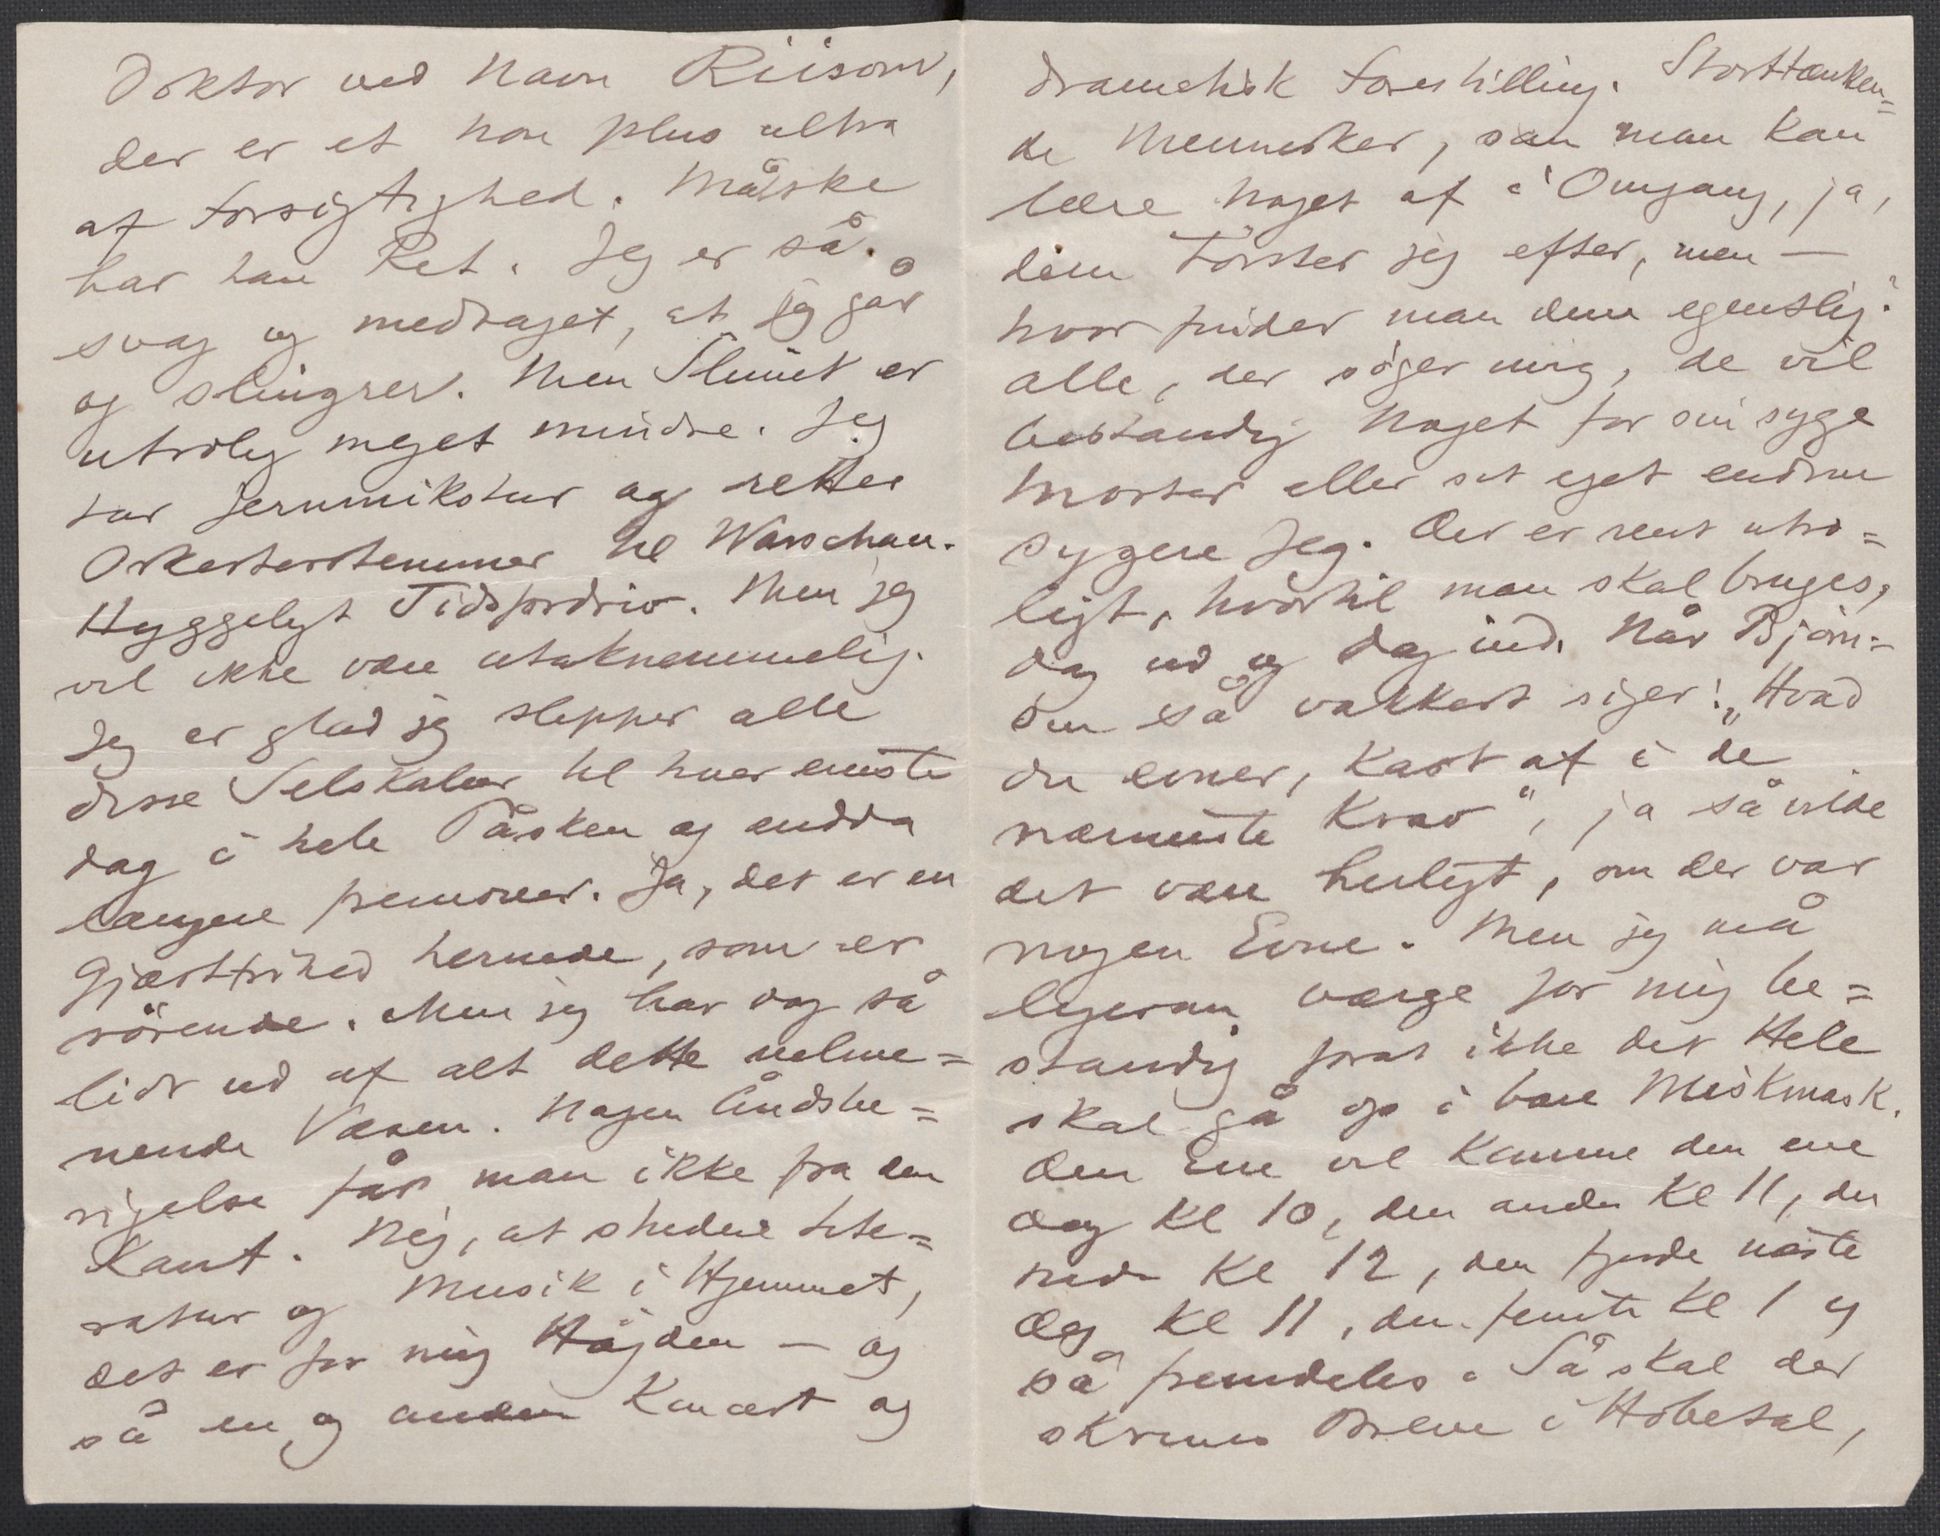 Doktor ved Navn Riisom,
der er et non plus ultra
af Forsigtighed. Måske
har han Ret. Jeg er så
svag og medtaget, at jeg går
og slingrer. Men Slimet er
utrolig meget mindre. Jeg
tar Jernmikstur og retter
Orkesterstemmer til Warschau.
Hyggeligt Tidsfordriv. Men jeg
vil ikke være utaknemmelig.
Jeg er glad jeg slepper alle
disse Selskaber til hver eneste
dag i hele Påsken og endda
længere fremover. Ja, det er en
Gjæstfrihed hernede, som er
rörende. Men jeg har dog så
lidt ud af alt dette velme=
nende Væsen. Nogen Åndsbe=
rigelse får man ikke fra den
Kant. Nej, at studere Lite=
ratur og Musik i Hjemmet,
det er for mig Höjden — og
så en og anden Koncert og
dramatisk Forestilling. Storttænken=
de Mennesker, som man kan
lære noget af i Omgang, ja,
dem törster jeg efter, men —
hvor finder man dem egentlig?
Alle, der söger mig, de vil
bestandig noget for sin syge
Moster eller sit eget endnu
sygere Jeg. Det er rent utro=
ligt, hvortil man skal bruges,
dag ud og dag ind. Når Björn=
son så vakkert siger: „Hvad
du evner, kast af i de
nærmeste Krav", ja så vilde
det være herligt, om der var
nogen Evne. Men jeg må
ligesom værge for mig be=
standig forat ikke det Hele
skal gå op i bare Miskmask.
Den Ene vil komme den ene
Dag Kl 10, den anden Kl 11, den
tredie Kl 12, den fjerde næste
Dag Kl 11, den femte Kl 1 og
så fremdeles. Så skal der
skrives Breve i Hobetal,